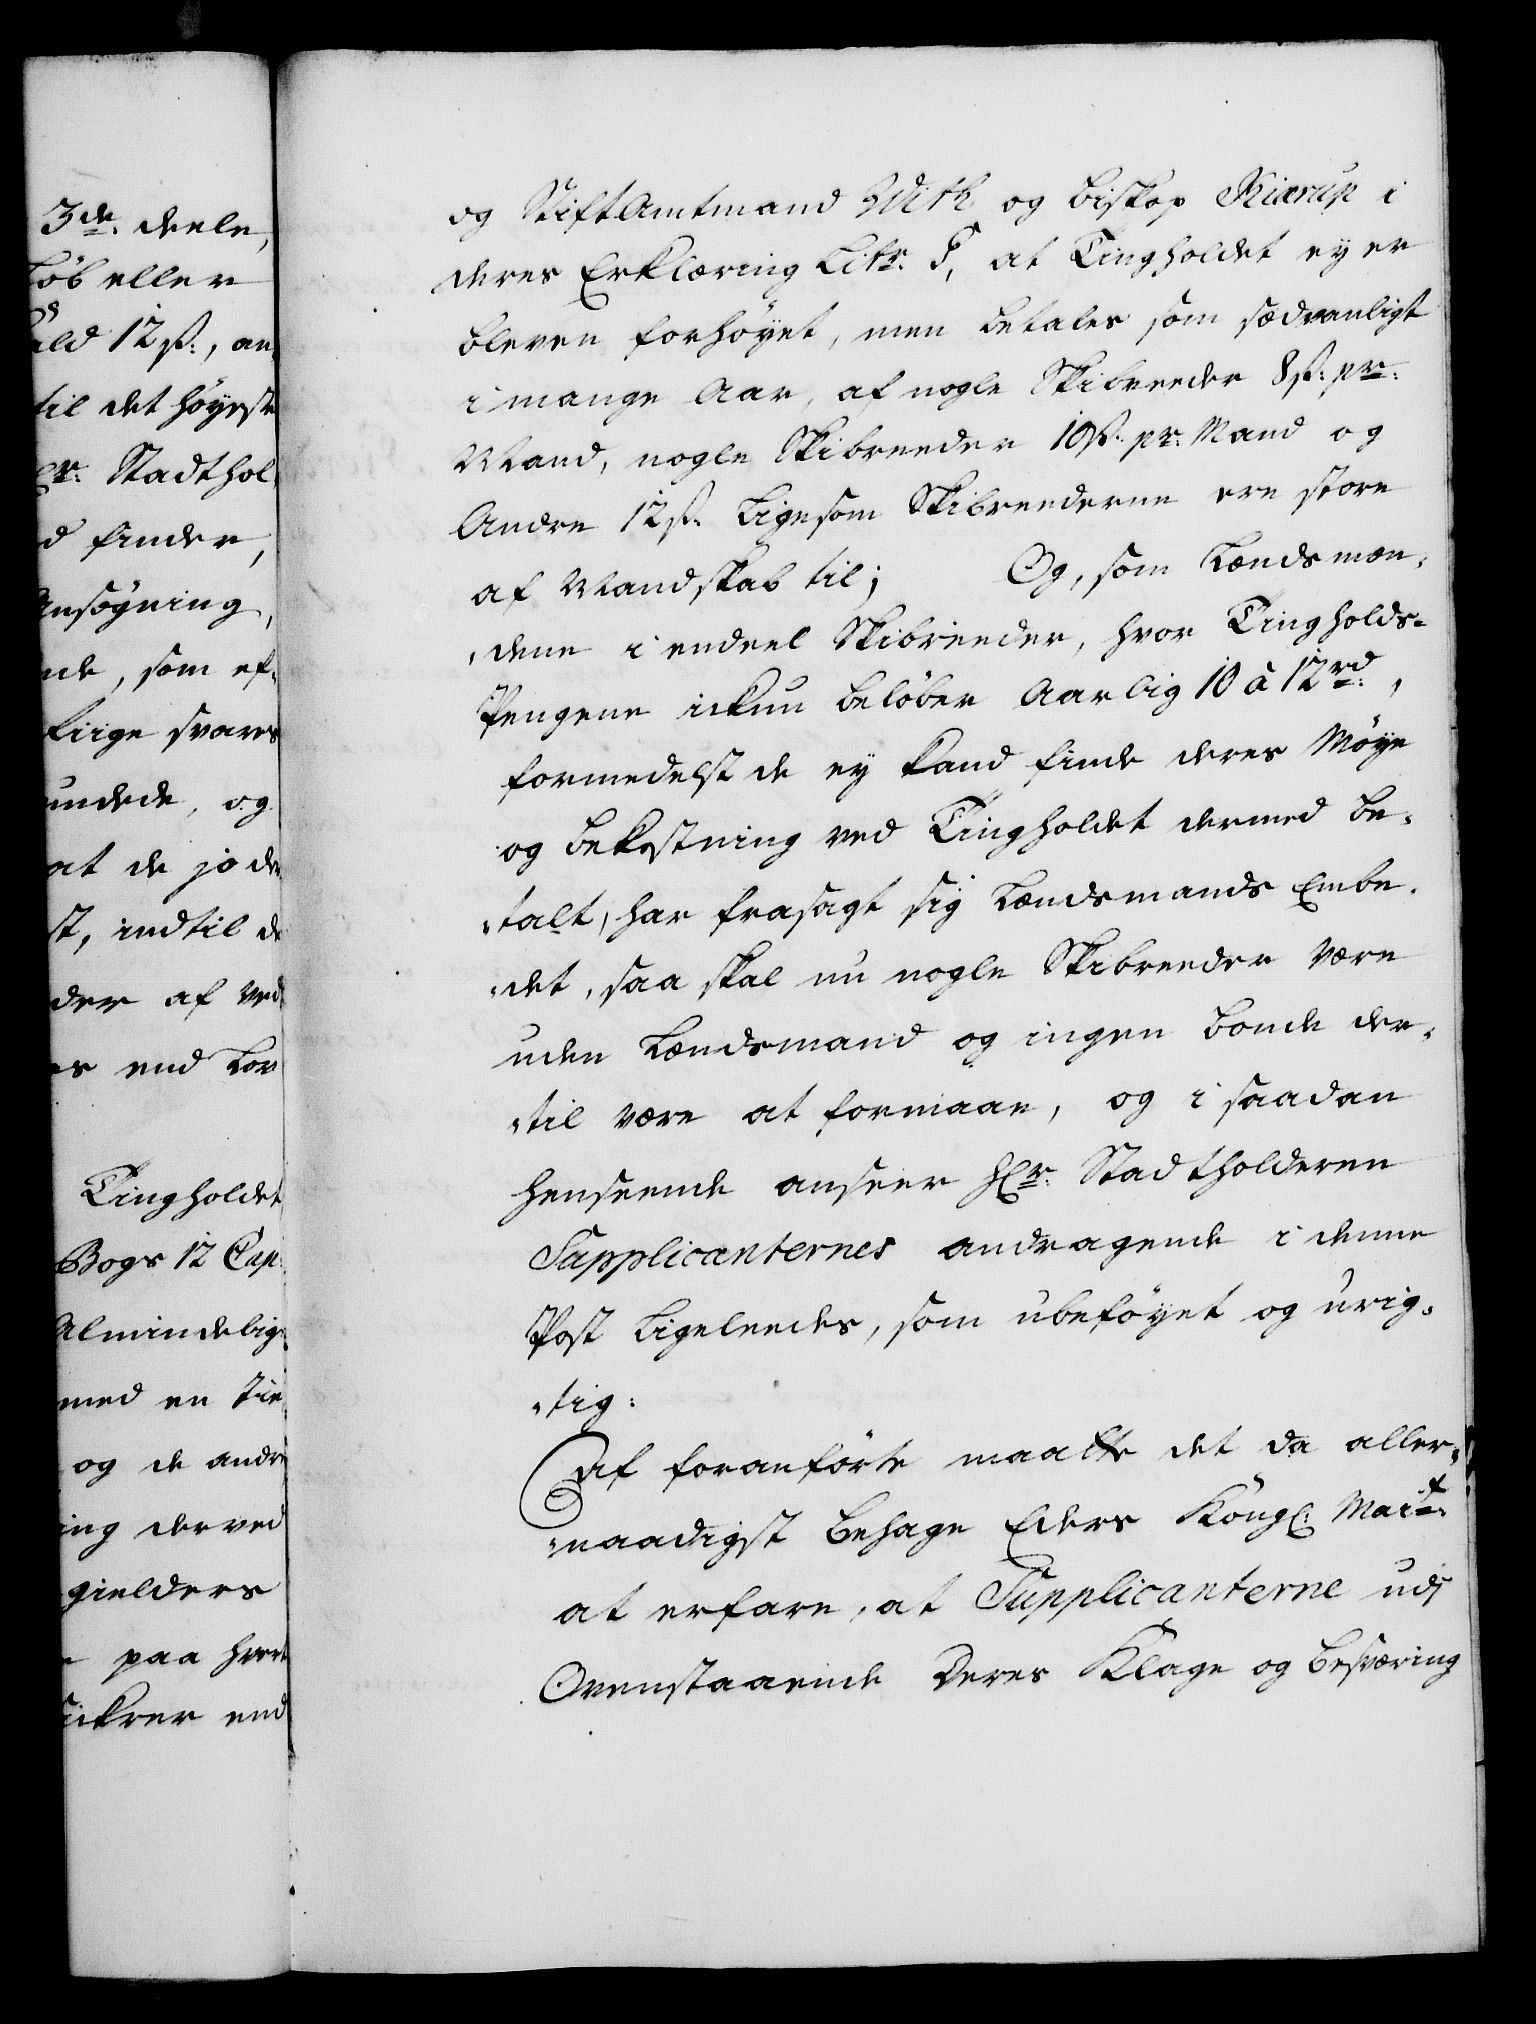 3de. deele,
løb eller
ald 12 ß:, an
til det høyeste
Hr: Stadthol
d finder,
Ansøgning,
nde, som ef-
kiige svares
undede, og
at de jo de
st, indtil de
der af ved
es end Lov
Tingholdet
Bogs 12 Cap:
Almindelig
med en Tie
og de andre
ing derved
gielders
paa hvert
sickrer end
og Stiftamtmand With og Biskop Kiærup i
deres Erklæring Litr. F, at Tingholdet ey er
bleven forhøyet, men betales som sædvanligt
i mange Aar, af nogle Skibreeder 8 ß: pr:
Mand, nogle Skibreeder 10 ß. pr: Mand og
Andre 12 ß. Ligesom Skibreederne ere store
af Mandskab til; Og, som Lændsmæn-
dene i endeel Skibreeder, hvor Tingholds-
Pengene ickun beløber Aarlig 10 à 12 rd:,
formedelst de ey kand finde deres Møye
og bekostning ved Tingholdet dermed be-
talt, har frasagt sig Lændsmands Embe-
det, saa skal nu nogle Skibreeder være
uden Lændsmand og ingen Bonde der-
til være at formaae, og i saadan
henseende anseer Hr: Stadtholderen
Supplicanternes andragende i denne
Post Ligeleedes, som ubeføyet og urig-
tig:
Af foranførte maatte det da aller-
naadigst behage Eders Kongl: Mait:
at erfare, at Supplicanterne udj
Ovenstaaende Deres Klage og besværing